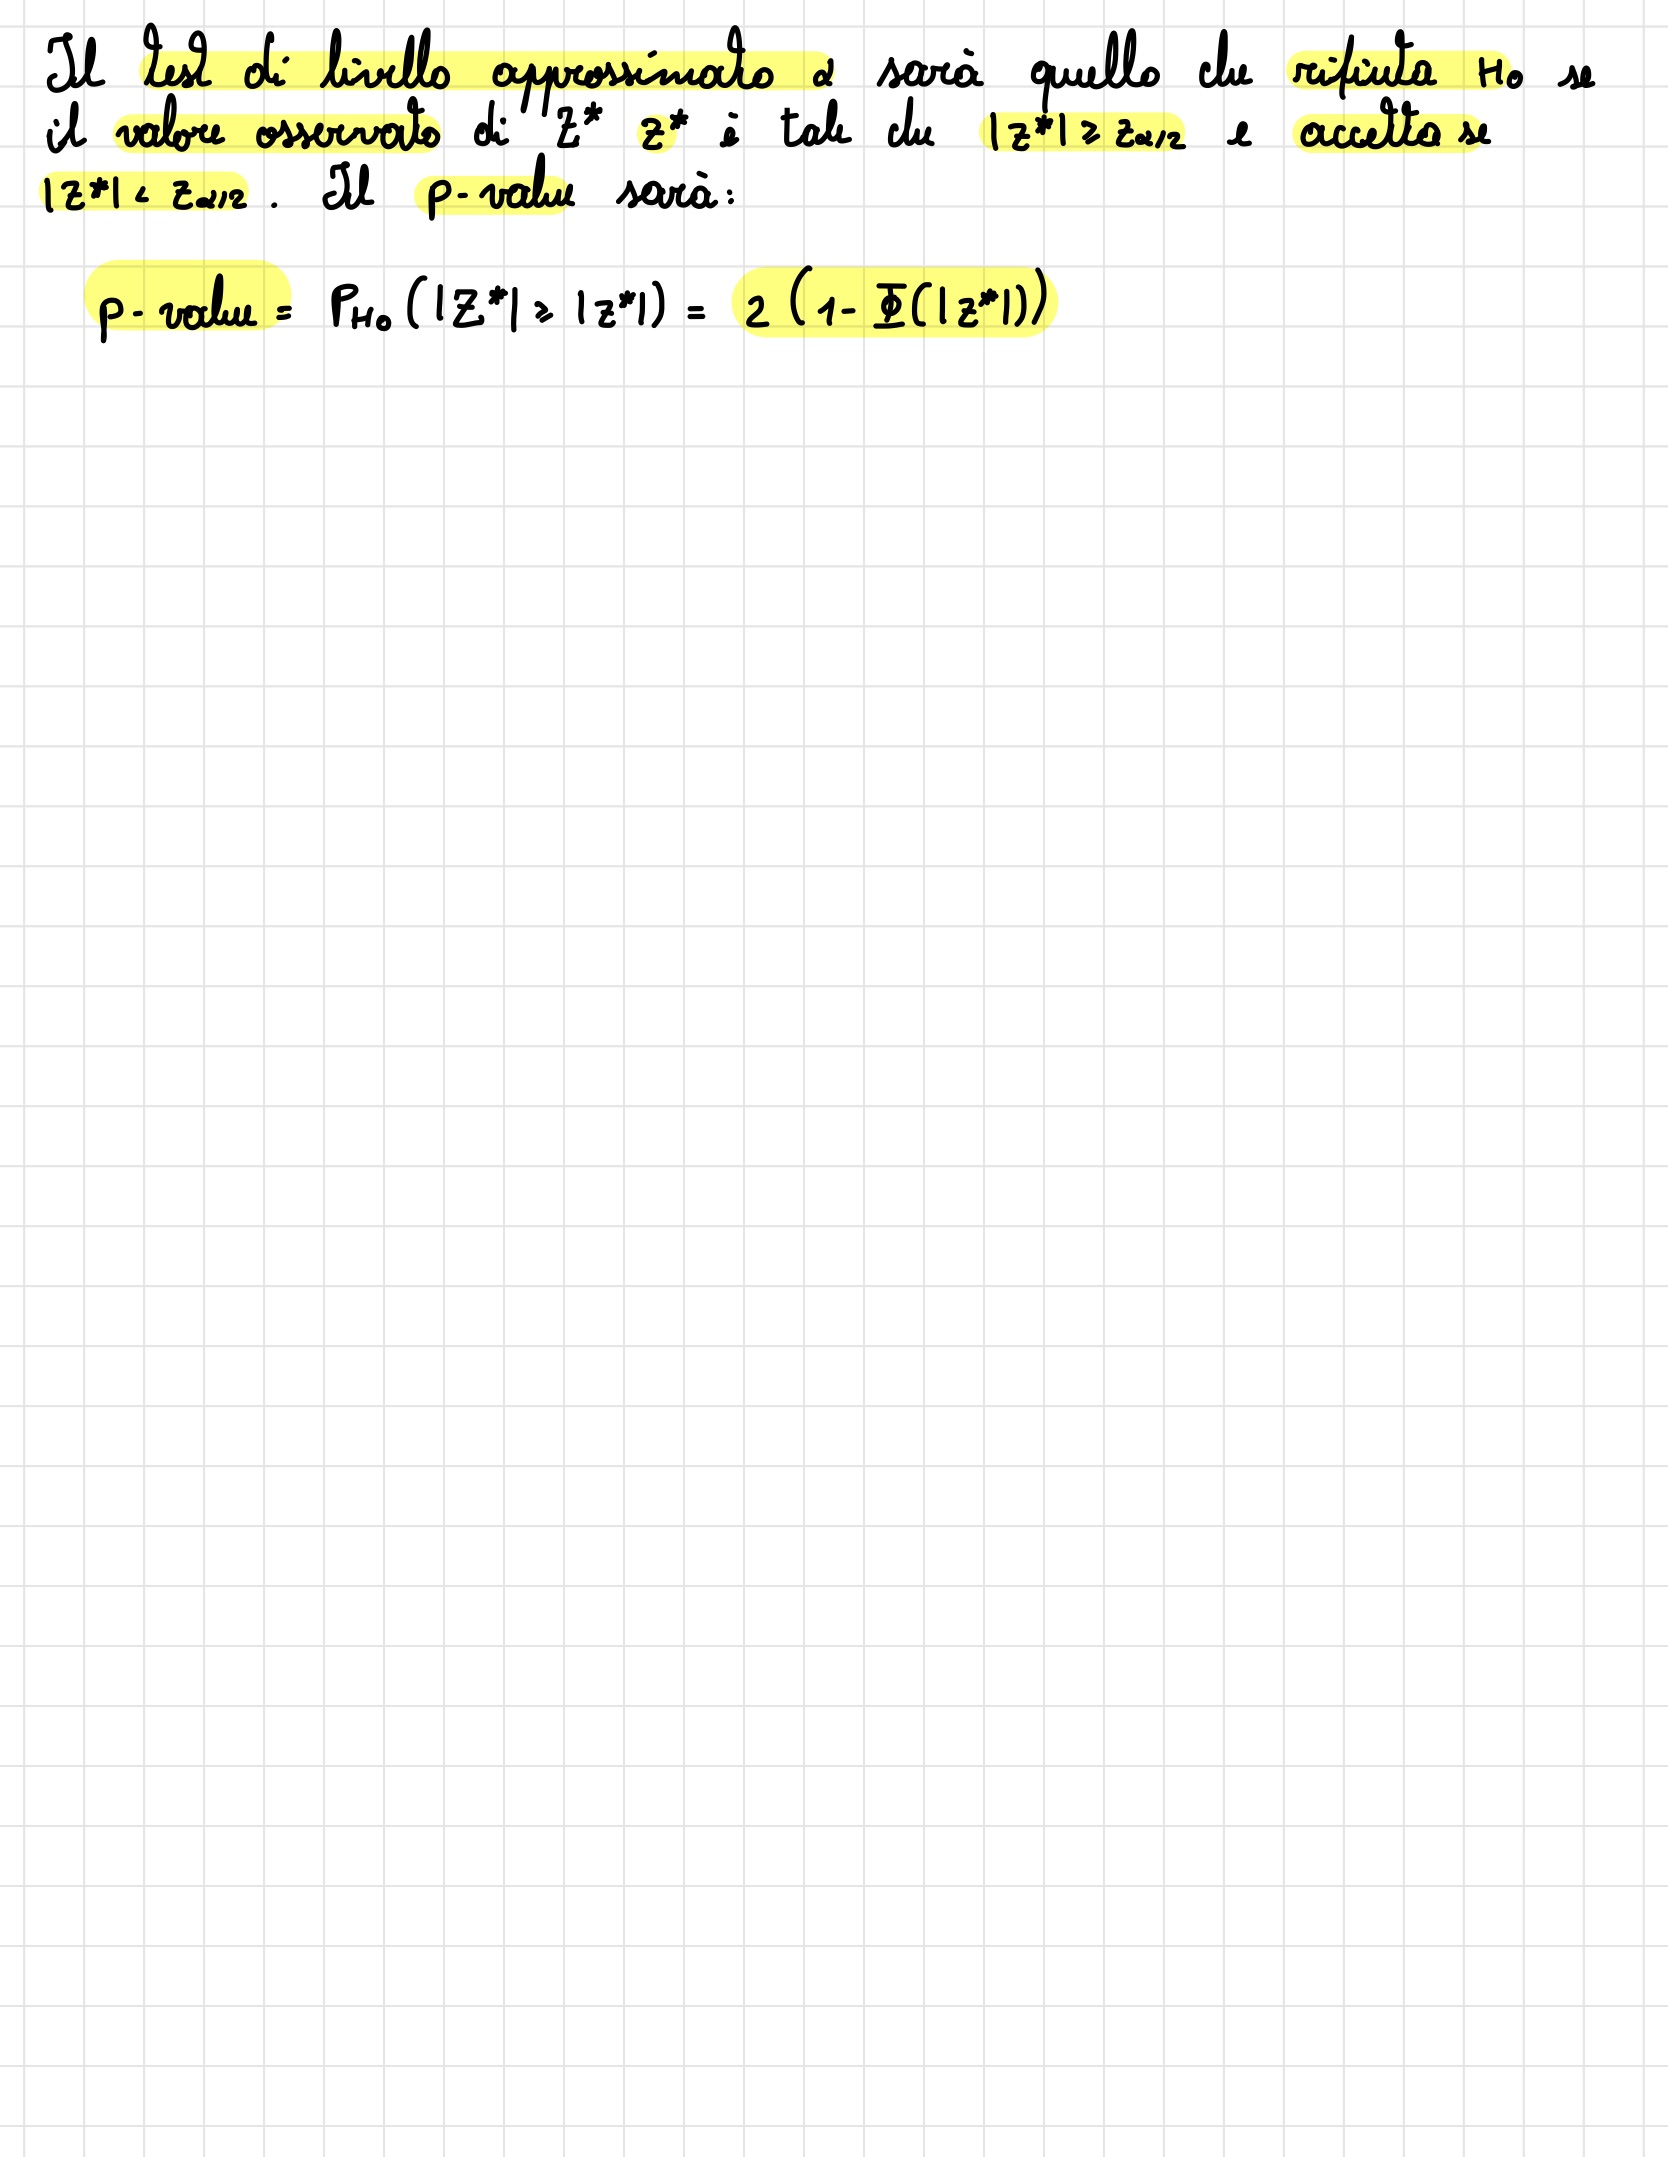 Il test di livello approssimato α sarà quello che rifiuta H₀ se
il valore osservato di Z* z* è tale che |z*| ≥ z_{α/2} e accetta se
|z*| < z_{α/2}. Il p-value sarà:
p-value = P_{H₀}(|Z*| ≥ |z*|) = 2(1-Φ(|z*|))